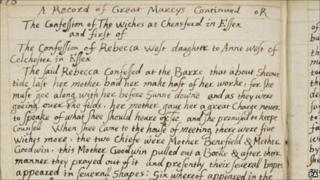 A Record of Great Marcys Continued OR
The Confession of The Wiches at Chensford in Essex
and first of
The Confession of Rebecca West daughter to Anne West of
Colchester in Essex
The said Rebecca Confessed at the Barre that about Shrove
tide last her mother bad her make hast of her worke, for she
must goe along with her before Sunne downe and as they were
goeing over the fields, her mother gave her a great Charge never
to speake of what shee should heare or see and she promised to keepe
Counsell When shee came to the house of meeting there were five
Withys more, the two Chiefe were Mother Benefield & Mother
Goodwin, this Mother Goodwin pulled out a Booke & after there
manner they prayed out of it and presently their severall Impes
appeared in severall Shapes: Six whereof appeared in the